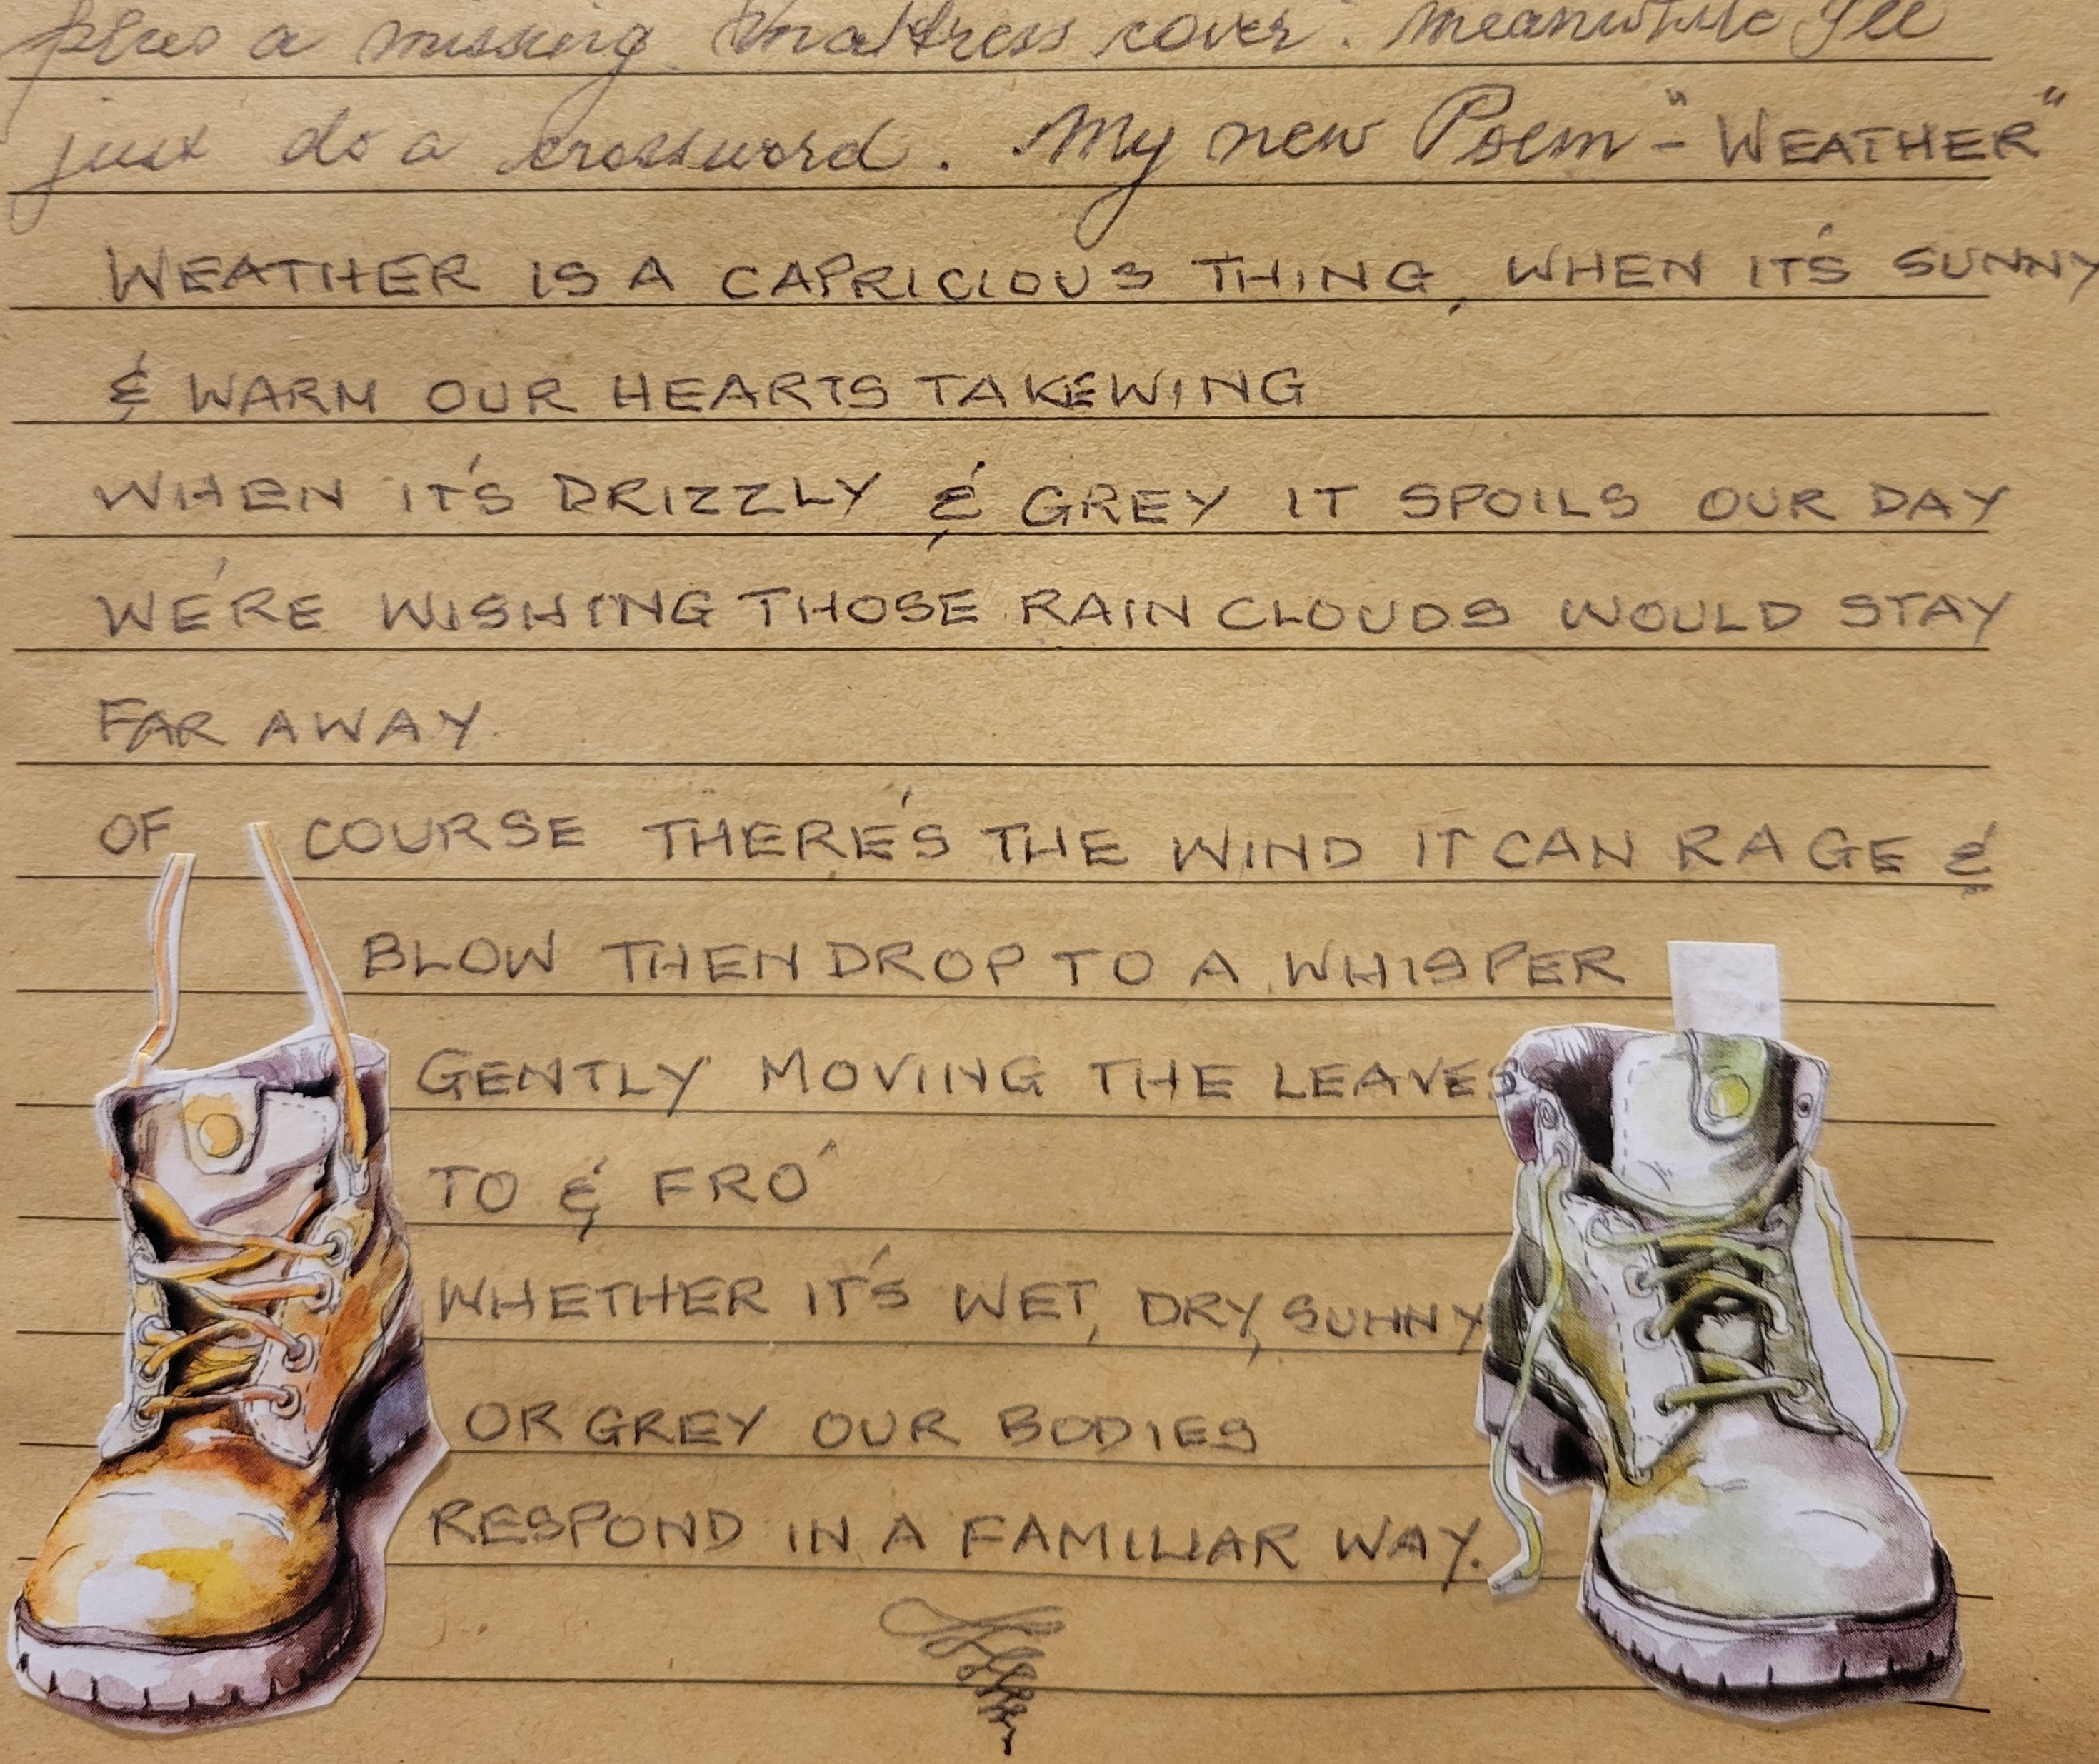 plus a missing mattress cover. Meanwhile I'll
just do a crossword. My new Poem - "WEATHER"
WEATHER IS A CAPRICIOUS THING, WHEN IT'S SUNNY
& WARM OUR HEARTS TAKE WING
WHEN IT'S DRIZZLY & GREY IT SPOILS OUR DAY
WE'RE WISHING THOSE RAIN CLOUDS WOULD STAY
FAR AWAY.
OF COURSE THERE'S THE WIND IT CAN RAGE &
BLOW THEN DROP TO A WHISPER
GENTLY MOVING THE LEAVES
TO & FRO'
WHETHER IT'S WET, DRY, SUNNY
OR GREY OUR BODIES
RESPOND IN A FAMILIAR WAY.